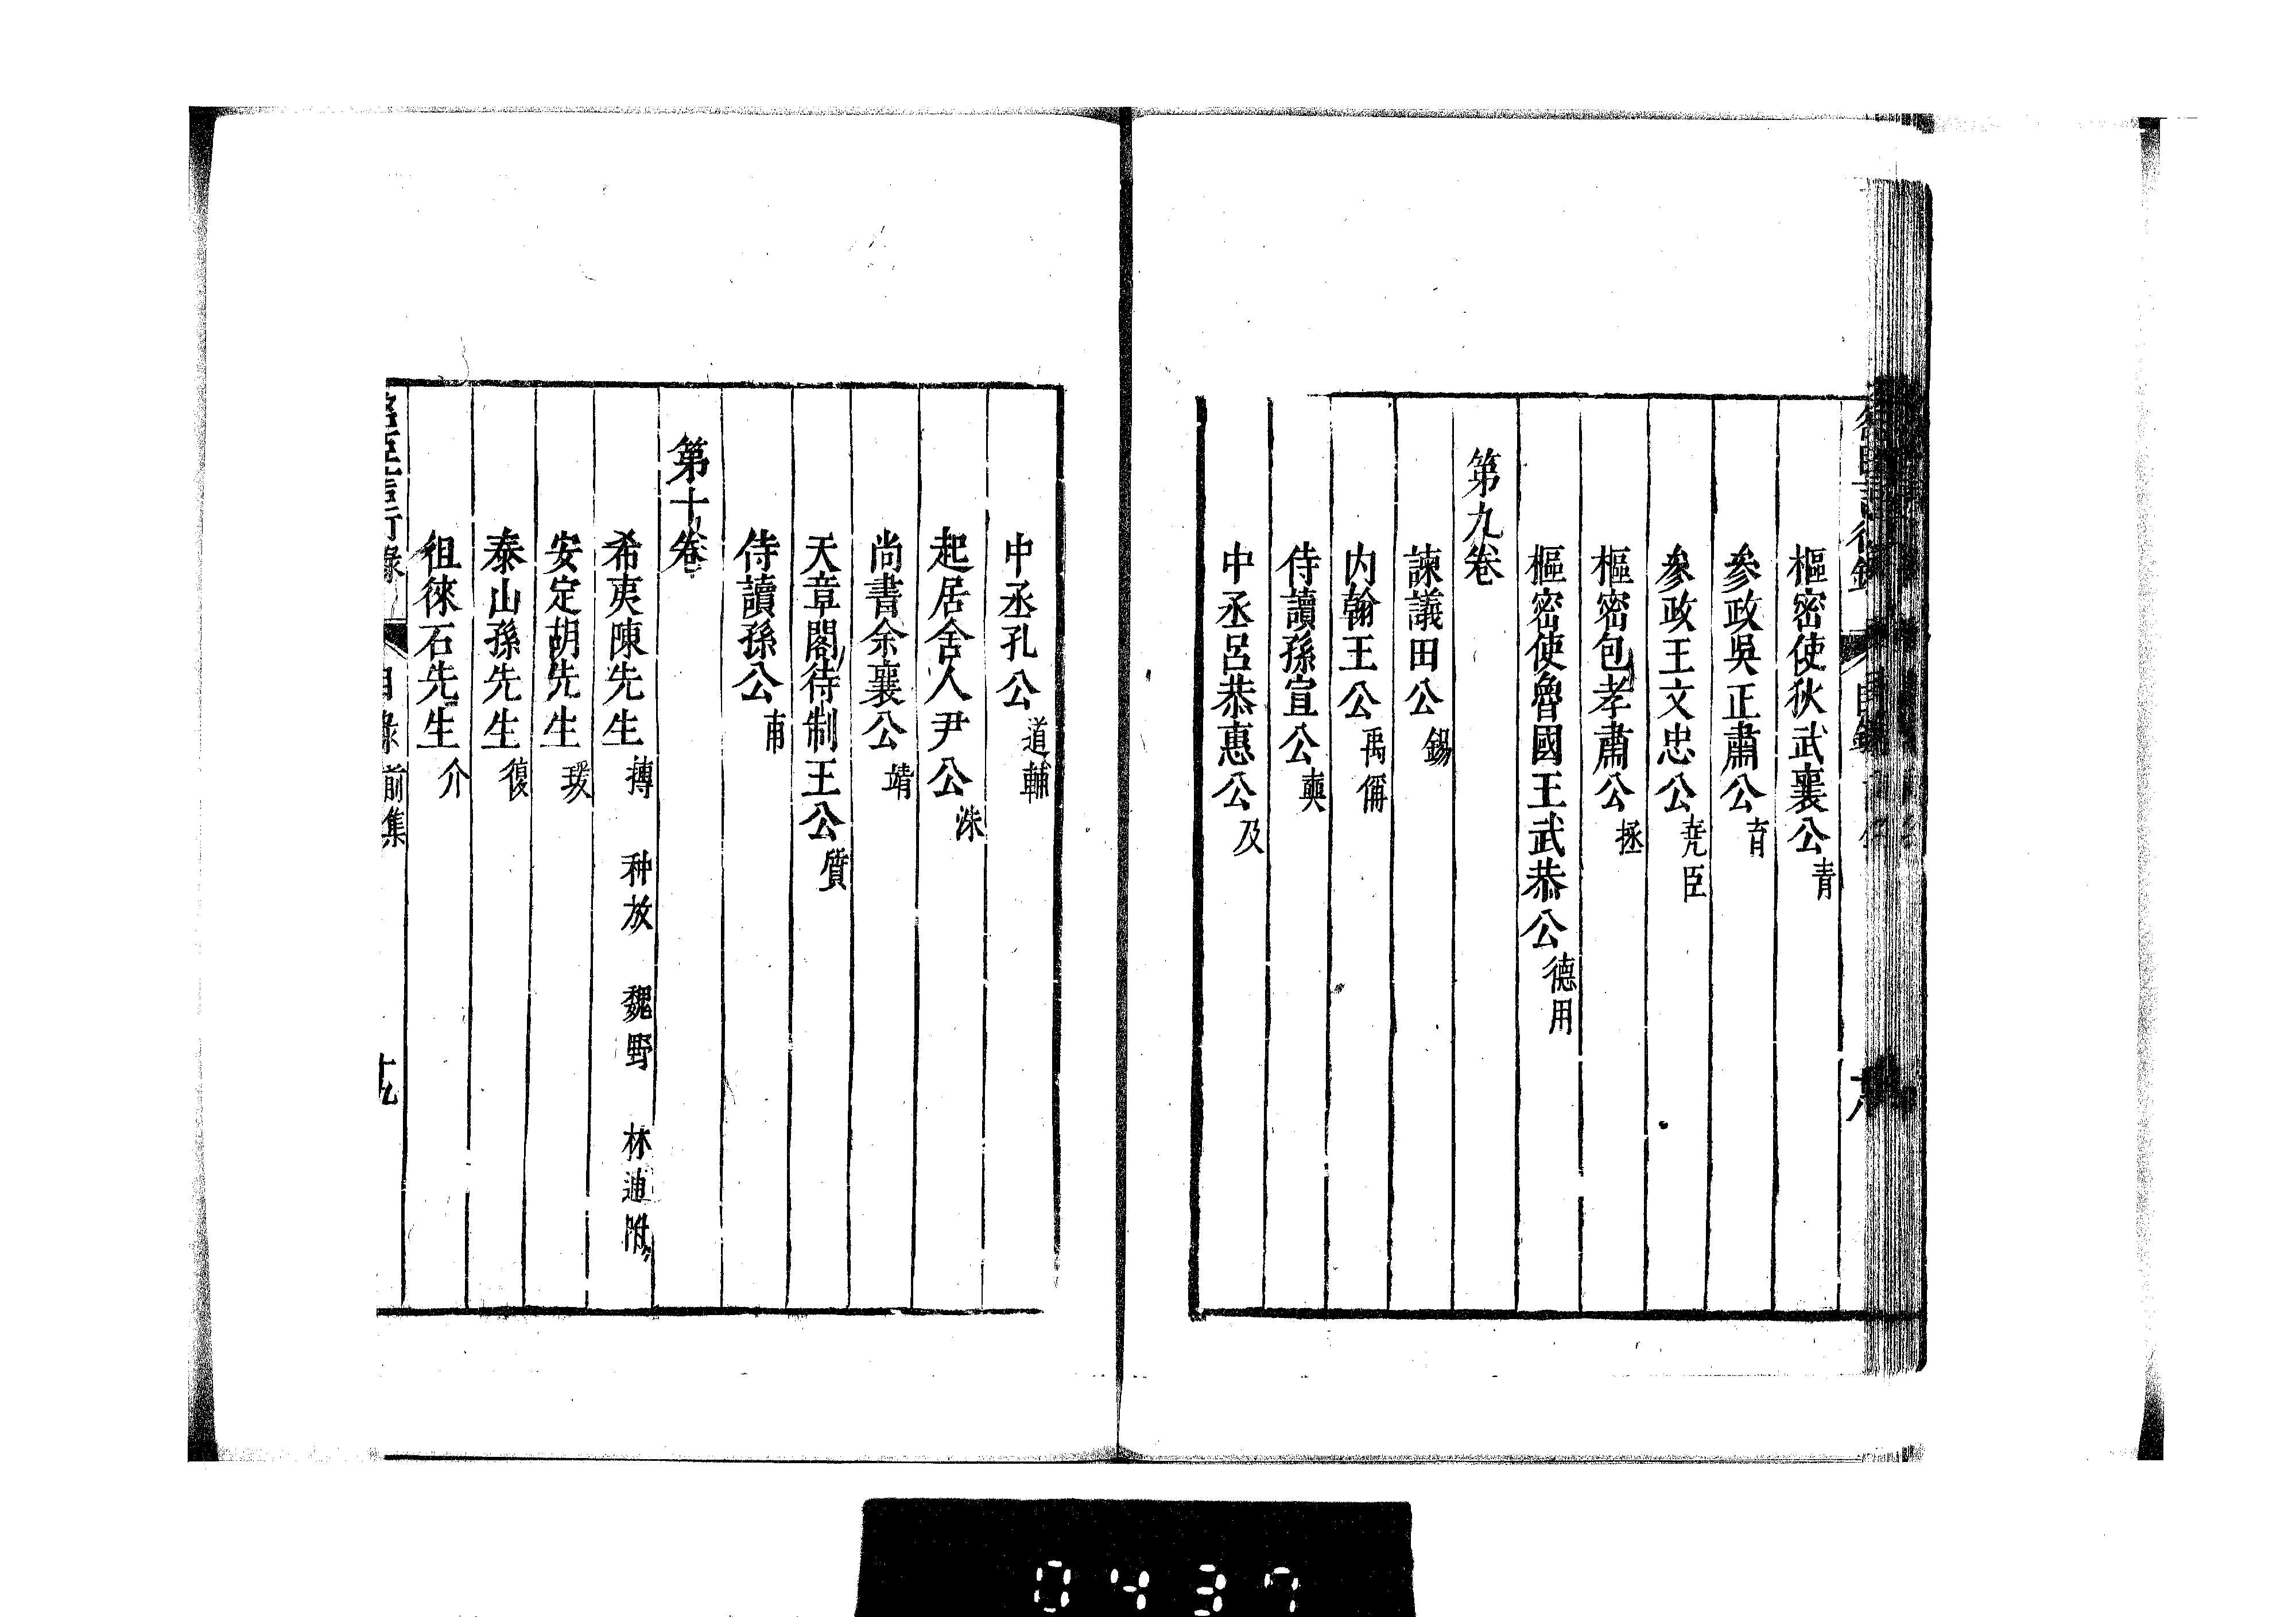 樞密使狄武襄公青
參政吳正肅公育
參政王文忠公堯臣
樞密包孝肅公拯
樞密使魯國王武恭公德用
第九卷
諫議田公錫
内翰王公禹偁
侍讀孫宣公奭
中丞呂恭惠公及
中丞孔公道輔
起居舍人尹公洙
尚書余襄公靖
天章閣待制王公質
侍讀孫公甫
第十卷
希夷陳先生摶 种放 魏野 林逋附
安定胡先生瑗
泰山孫先生復
徂徠石先生介
言行錄 目錄 前集 十九
0437